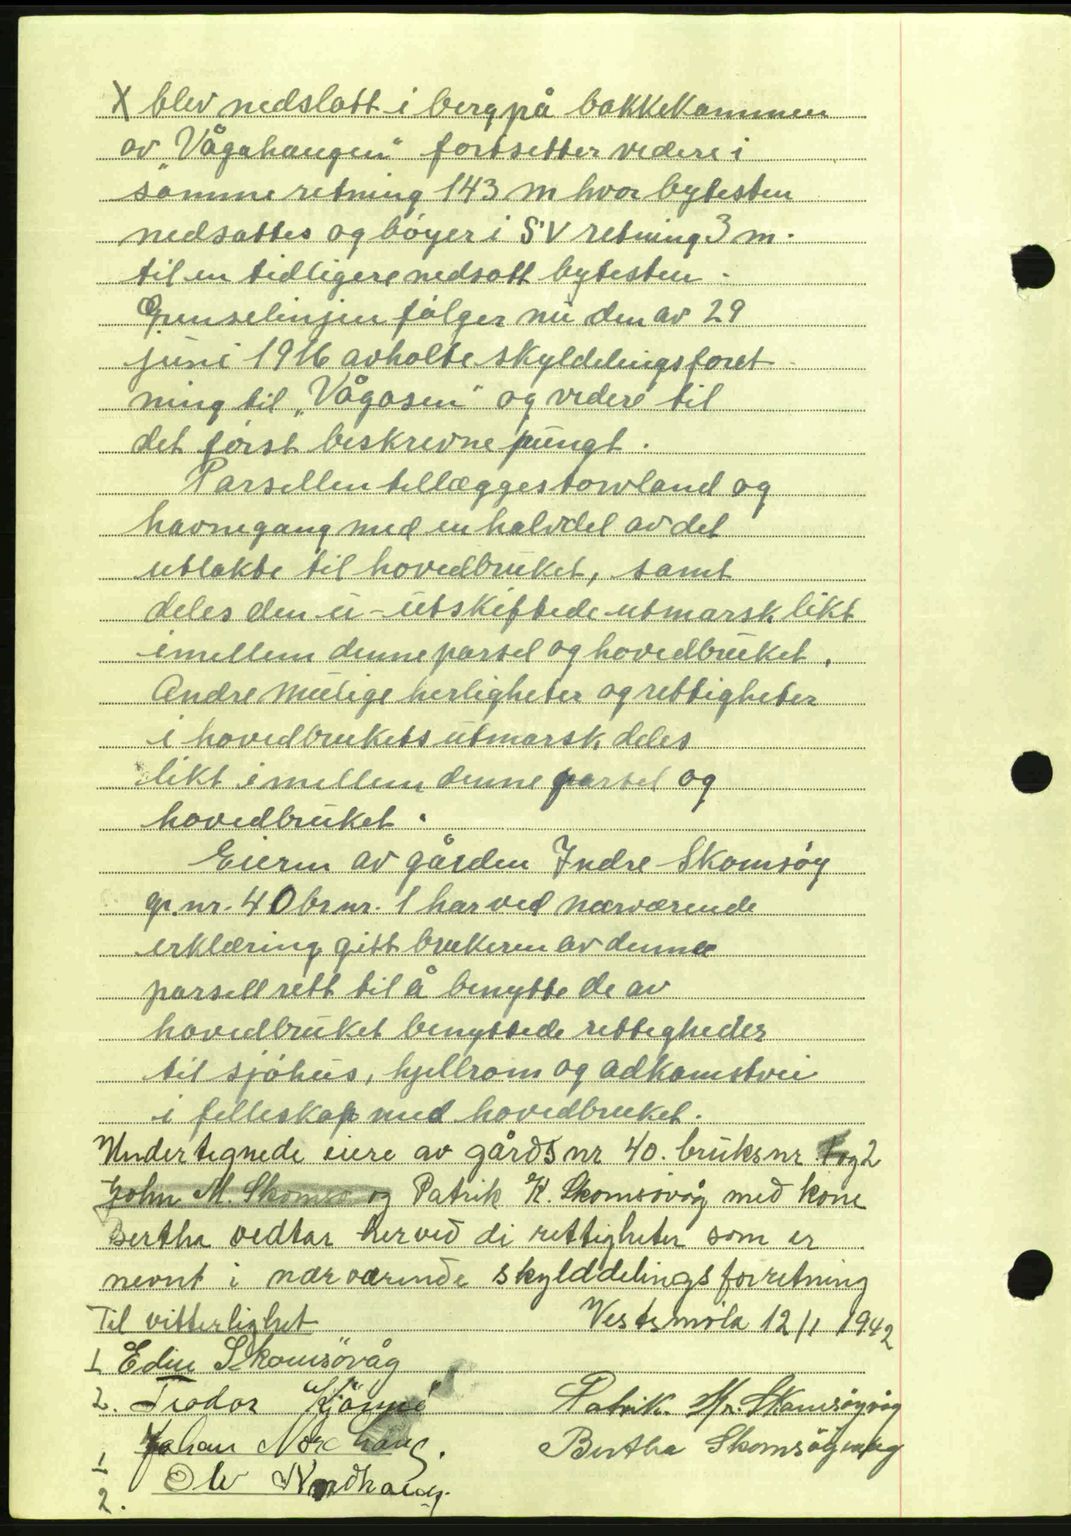 X blev nedslatt i berg på bakkekammen
av "Vågahaugen" fortsetter videre i
samme retning 143 m hvor bytesten
nedsattes og bøyer i SV retning 3 m.
til en tidligere nedsatt bytesten.
Grenselinjen følger nu den av 29
juni 1916 avholte skylddelingsforet-
ning til "Vågåsen" og videre til
det først beskrevne pungt.
Parsellen tillægges torvland og
havnegang med en halvdel av det
utlakte til hovedbruket, samt
deles den u-utskiftede utmarsk likt
imellem denne parsel og hovedbruket.
Andre mulige herligheter og rettigheter
i hovedbrukets utmarsk deles
likt imellem denne parsel og
hovedbruket.
Eieren av gården Indre Skomsøy
gr.nr. 40 br.nr. 1 har ved nærværende
erklæring gitt brukeren av denne
parsell rett til å benytte de av
hovedbruket benyttede rettigheder
til sjøhus, hjellrom og adkomstvei
i felleskap med hovedbruket.
Undertegnede eiere av gårdsnr 40. bruksnr 1 og 2
John M. Skomsø og Patrik K. Skomsøvåg med kone
Bertha vedtar herved di rettigheter som er
nevnt i nærværende skylddelingsforretning
Til vitterlighet Vestsmøla 12/1 1942
1 Edin Skomsøvåg
2. Teodor Kjønnø Patrik Kr. Skomsøyvåg
1 Johan Nordhaug. Bertha Skomsøyvåg
2. Ole Nordhaug.